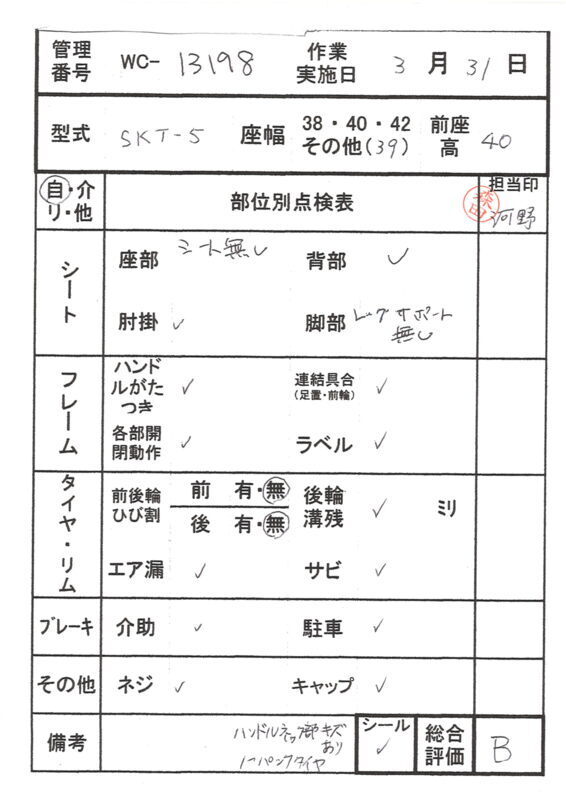 管理番号 WC- 13198 作業実施日 3 月 31 日
型式 SKT-5 座幅 38・40・42 その他(39) 前座高 40
自・介 リ・他 部位別点検表 担当印 河野
シート 座部 シート無し 背部 ✓
肘掛 ✓ 脚部 レッグサポート無し
フレーム ハンドルがたつき ✓ 連結具合(足置・前輪) ✓
各部開閉動作 ✓ ラベル ✓
タイヤ・リム 前後輪ひび割 前 有・無 後 有・無 後輪溝残 ✓ ミリ
エア漏 ✓ サビ ✓
ブレーキ 介助 ✓ 駐車 ✓
その他 ネジ ✓ キャップ ✓
備考 ハンドルネック部キズあり ノーパンクタイヤ シール ✓ 総合評価 B